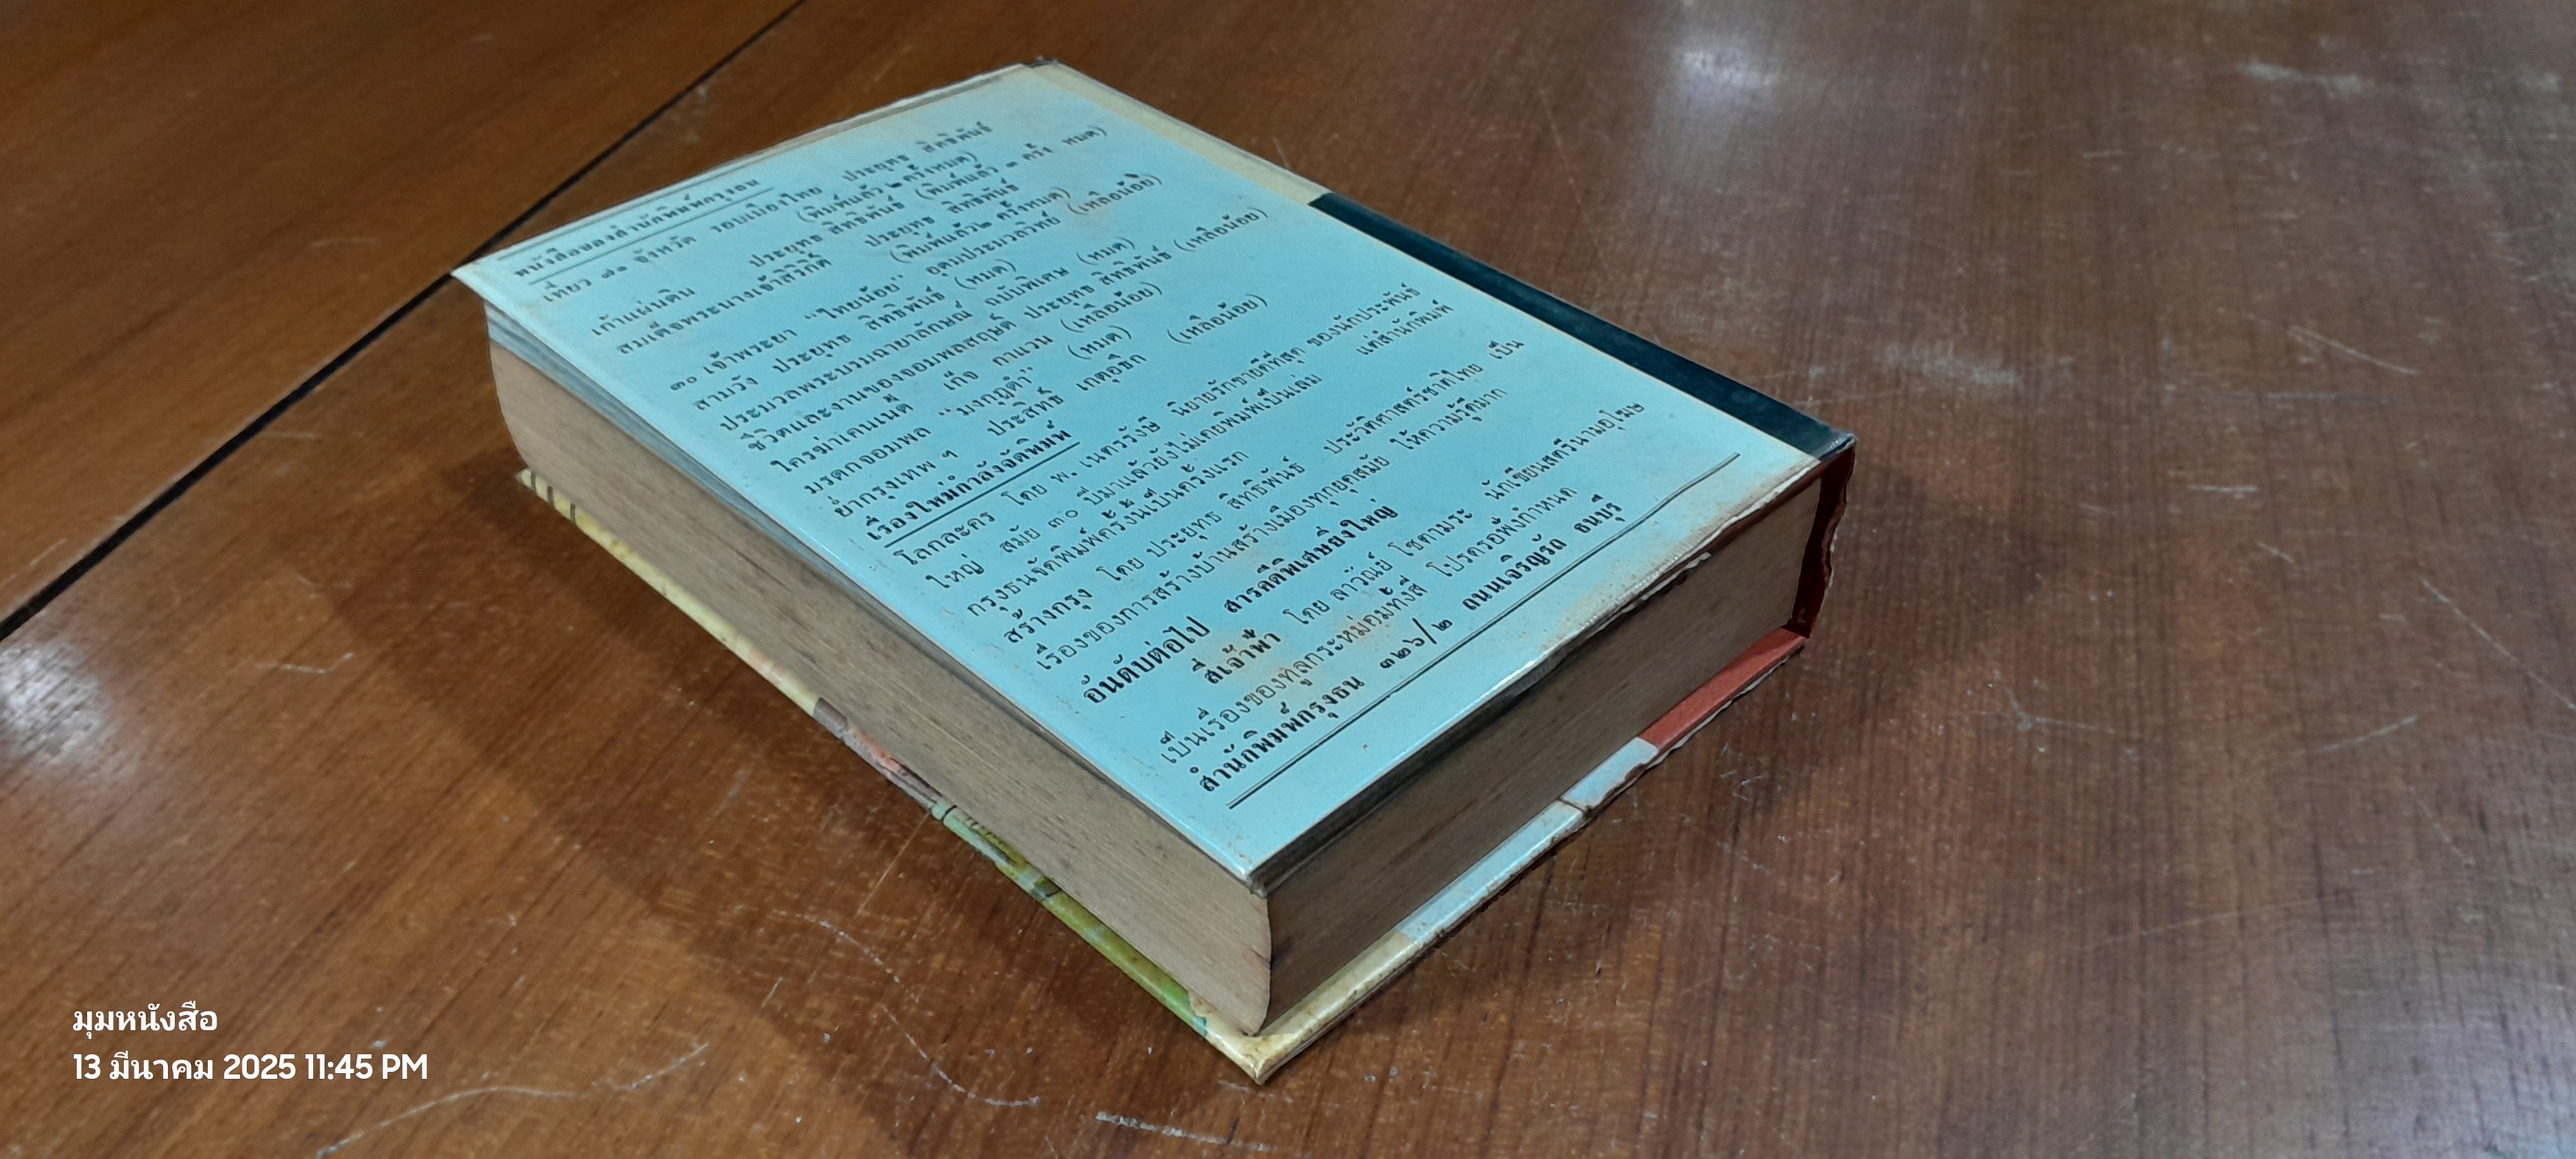 หนังสือของสำนักพิมพ์กรุงธน
เที่ยว ๗๑ จังหวัด รอบเมืองไทย ประยุทธ สิทธิพันธ์
(พิมพ์แล้ว ๒ ครั้งหมด)
เจ้าแผ่นดิน ประยุทธ สิทธิพันธ์ (พิมพ์แล้ว ๓ ครั้ง หมด)
สมเด็จพระนางเจ้าสิริกิติ์ ประยุทธ สิทธิพันธ์
(พิมพ์แล้ว๒ ครั้งหมด)
๓๐ เจ้าพระยา "ไทยน้อย" อุดมประมวลวิทย์ (เหลือน้อย)
สามวัง ประยุทธ สิทธิพันธ์ (หมด)
ประมวลพระบรมฉายาลักษณ์ ฉบับพิเศษ (หมด)
ชีวิตและงานของจอมพลสฤษดิ์ ประยุทธ สิทธิพันธ์ (เหลือน้อย)
ใครฆ่าเคนเนดี้ เก็จ กาแวน (เหลือน้อย)
มรดกจอมพล "มงกุฎดำ" (หมด)
ย่ำกรุงเทพ ฯ ประสิทธิ์ เกตุอธิก (เหลือน้อย)
เรื่องใหม่กำลังจัดพิมพ์
โลกละคร โดย พ. เนตรรังษี นิยายรักขายดีที่สุด ของนักประพันธ์
ใหญ่ สมัย ๓๐ ปีมาแล้วยังไม่เคยพิมพ์เป็นเล่ม แต่สำนักพิมพ์
กรุงธนจัดพิมพ์ครั้งนี้เป็นครั้งแรก
สร้างกรุง โดย ประยุทธ สิทธิพันธ์ ประวัติศาสตร์ชาติไทย เป็น
เรื่องของการสร้างบ้านสร้างเมืองทุกยุคสมัย ให้ความรู้ดีมาก
อันดับต่อไป สารคดีพิเศษยิ่งใหญ่
สี่เจ้าฟ้า โดย ลาวัณย์ โชตามระ นักเขียนสตรีนามอุโฆษ
เป็นเรื่องของทูลกระหม่อมทั้งสี่ โปรดรอฟังกำหนด
สำนักพิมพ์กรุงธน ๓๒๖/๒ ถนนเจริญรัถ ธนบุรี
มุมหนังสือ
13 มีนาคม 2025 11:45 PM